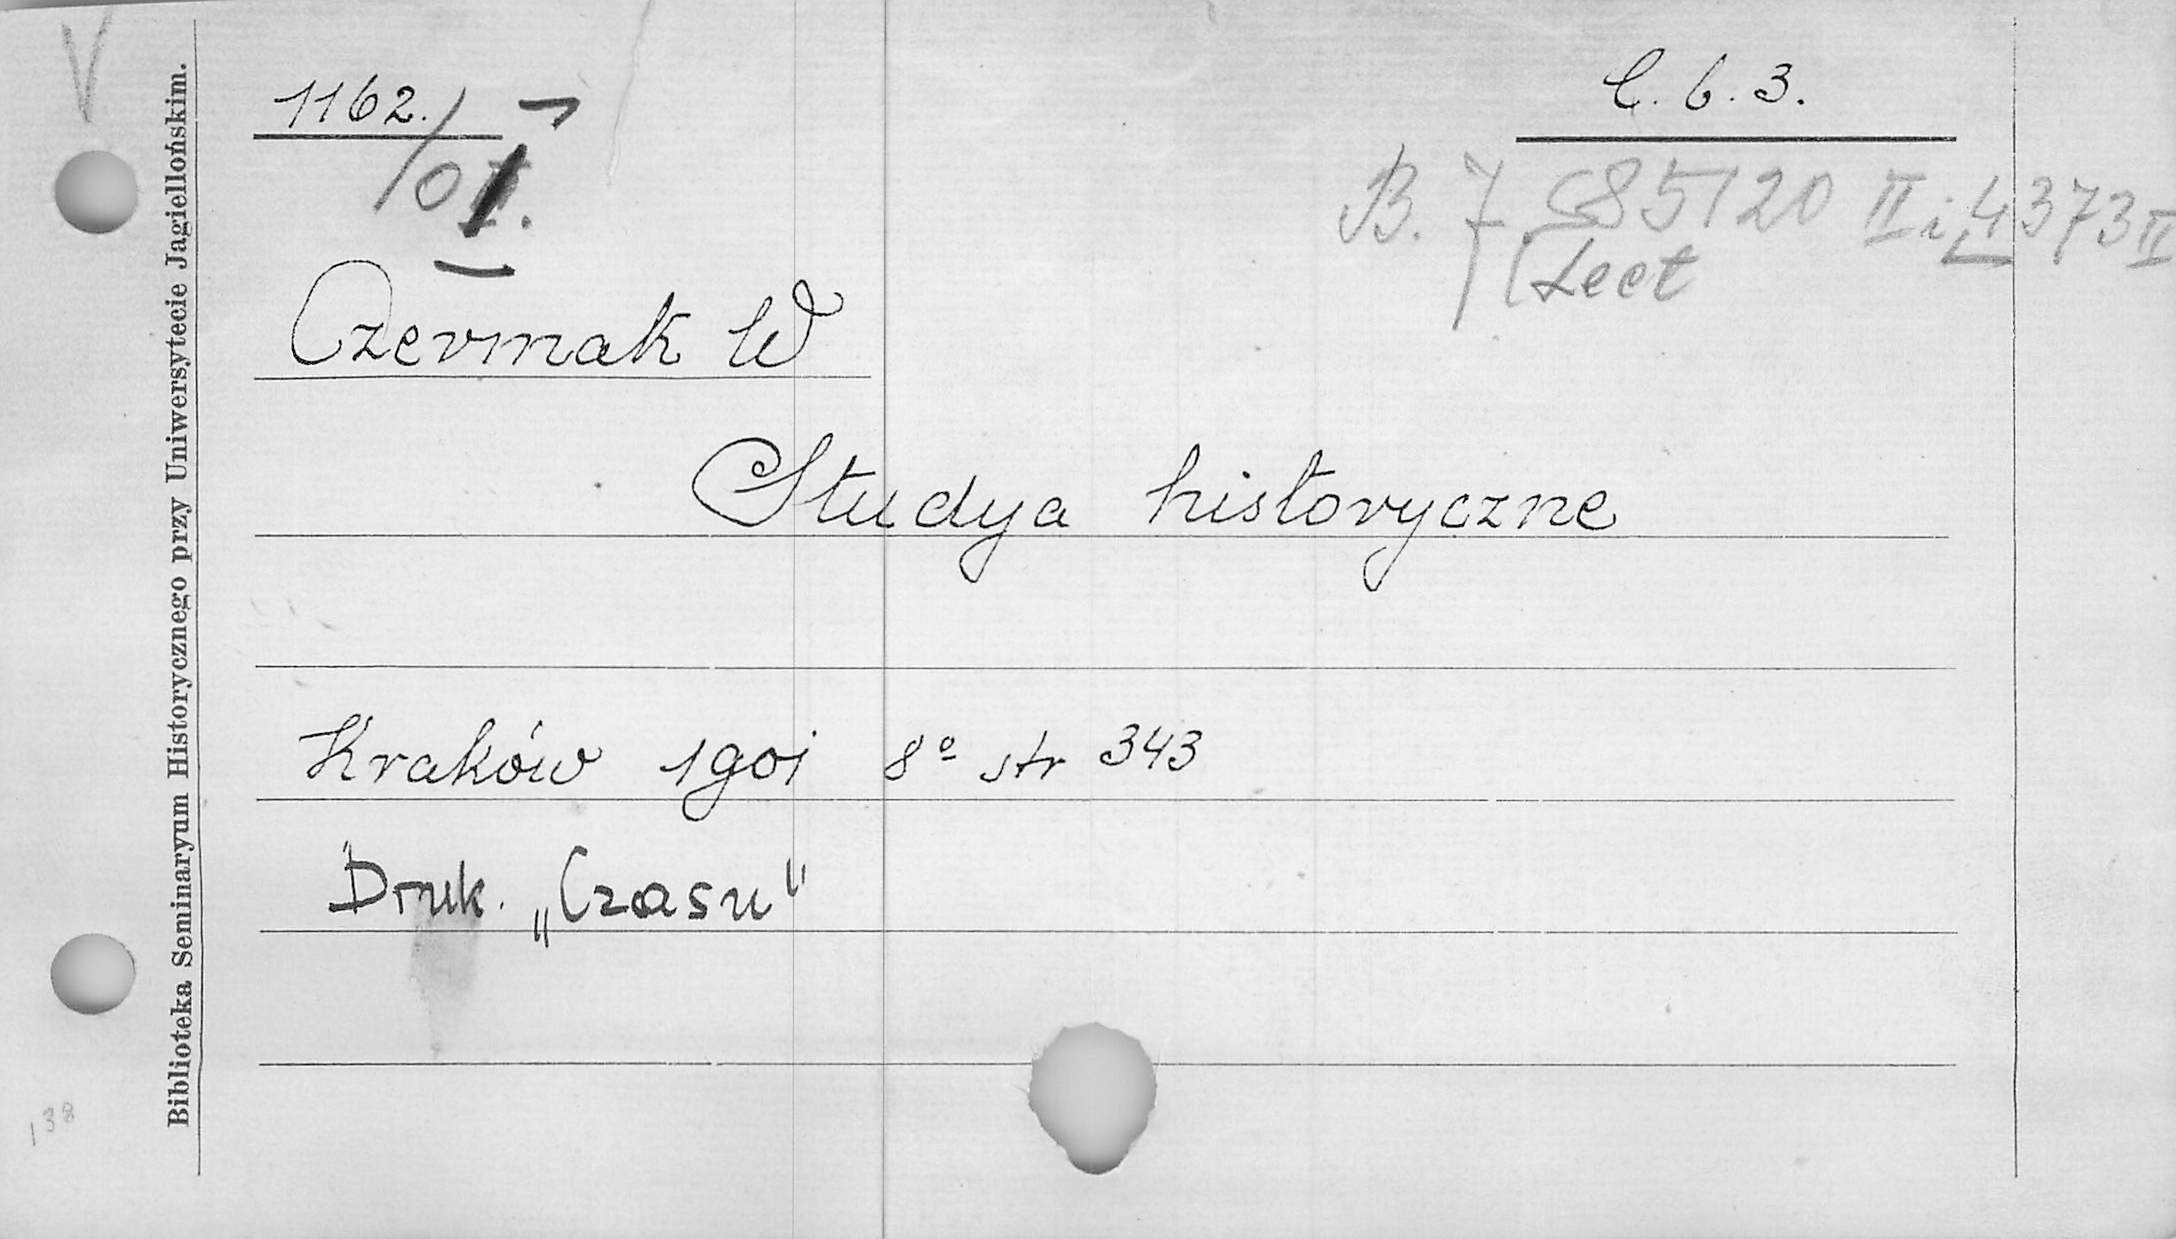 V
1162.
C. b. 3.
B. 7 585120 II i 4373 II
Lect
Czermak W
Studya historyczne
Kraków 1901 8º str 343
Druk. „Czasu”
Biblioteka Seminaryum Historycznego przy Uniwersytecie Jagiellońskim.
138